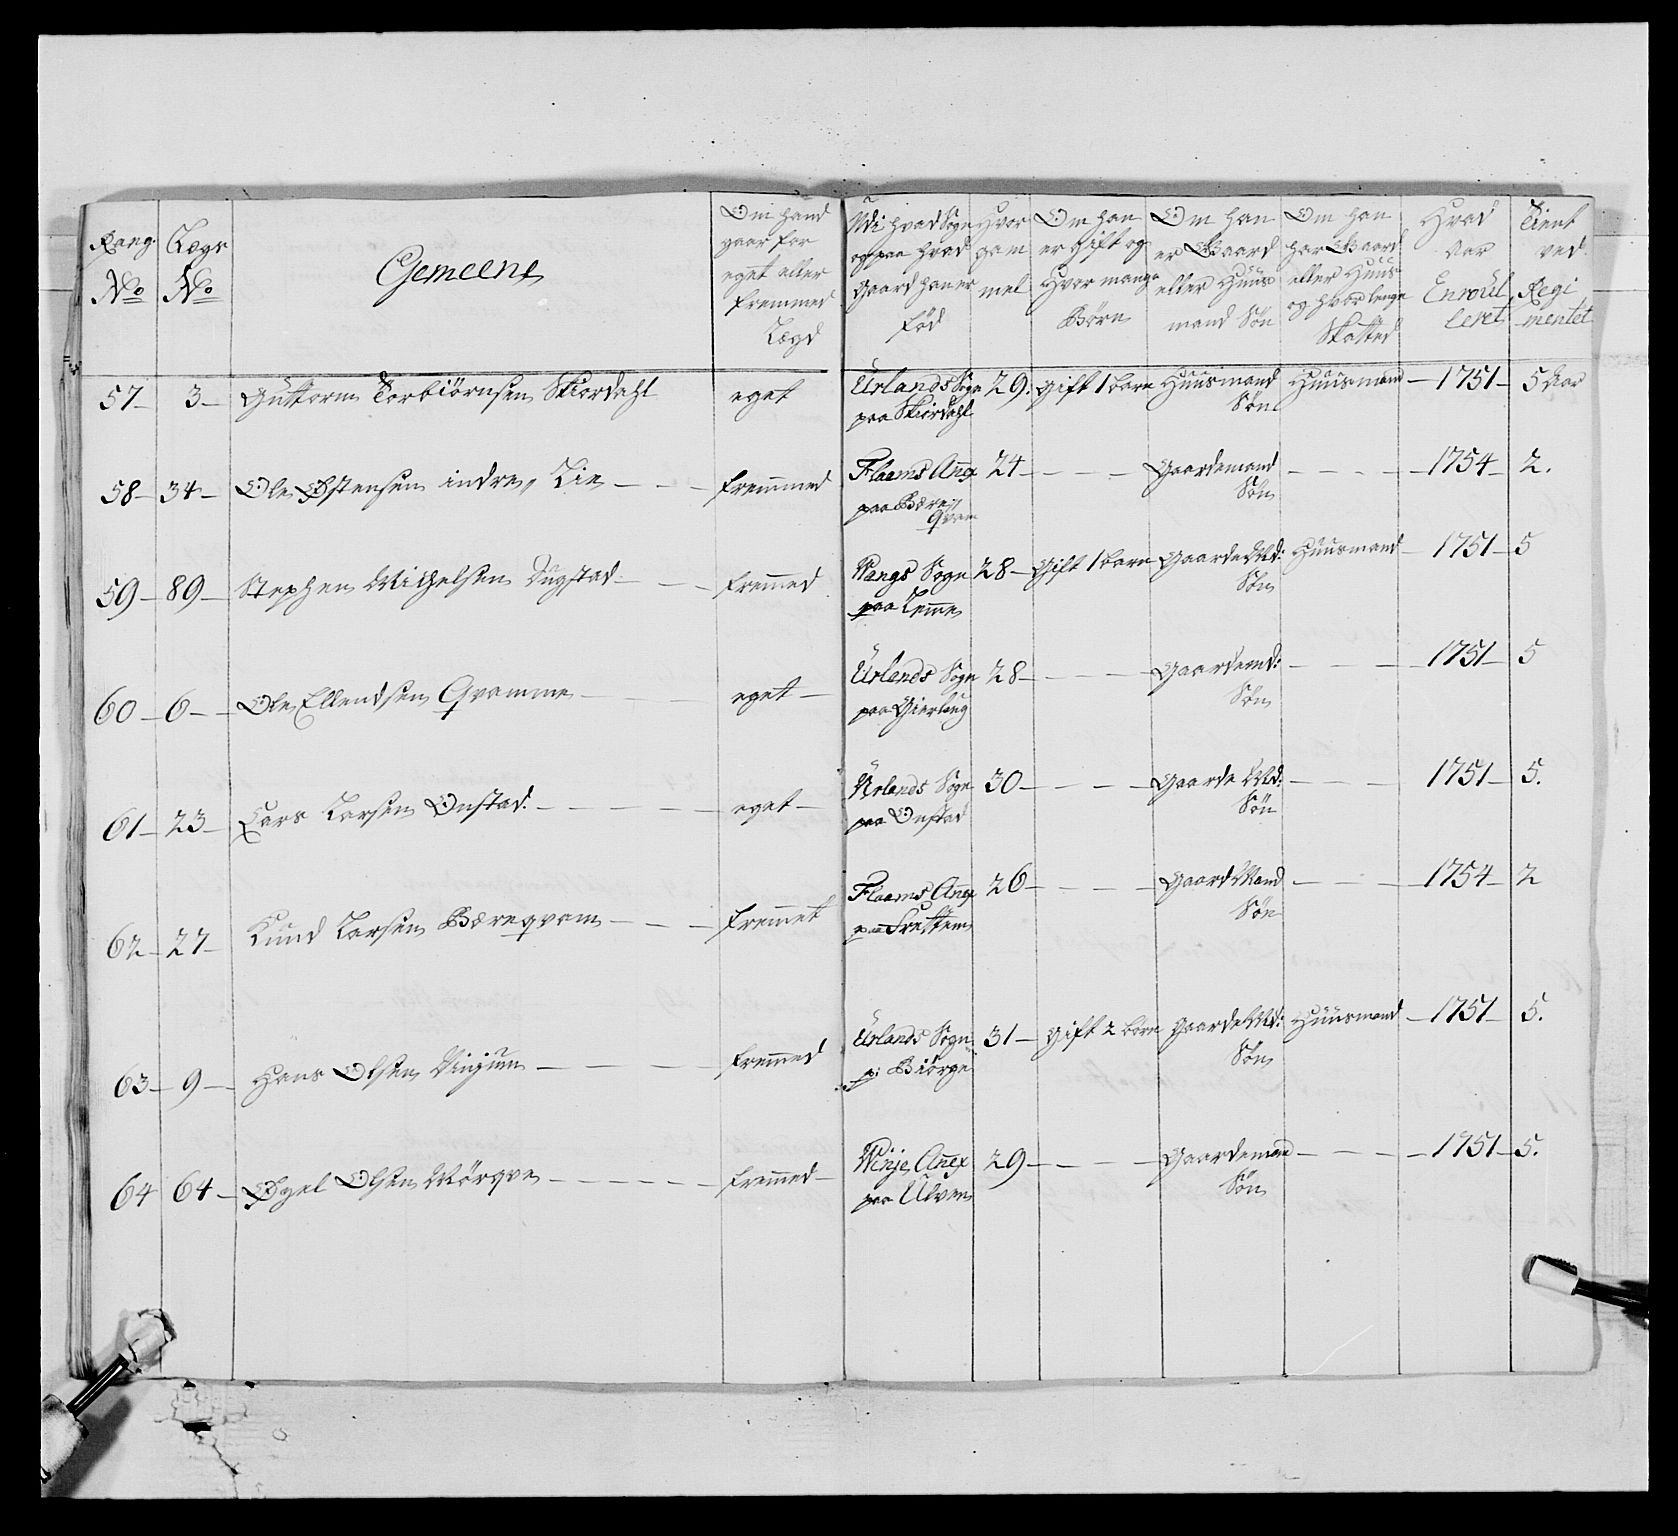 Rang No | Lægs No | Gemeene | Om hand gaar for eget eller fremmed Lægd | Udi hvad Sogn og paa hvad Gaard han er fød | Hvor gammel | Om han er Gift og Hvor mange Börn | Om han er Gaard eller Huus mand Søn | Om han har Gaard eller Huus og hvor lenge Skatted | Hvad Aar Enroulleret | Tient ved Regimentet
57 – 3 – Guttorm Torbiörnsen Skiordahl | eget | Urlands Sogn paa Skiordahl | 29. | Gift 1 barn | Huusmand Søn | Huusmand – | 1751 – | 5 Aar
58 – 34 – Ole Østensen indre Lie – – – | fremmed | Flaams Anex paa Bære Qvam | 24 – | – – – | Gaardemand Søn | – – – – | 1754 – | 2.
59 – 89 – Stephen Michelsen Dugstad – – – | fremmed | Vangs Sogn paa Lemme | 28 – | Gift 1 barn | Gaarde Md: Søn | Huusmand – | 1751 – | 5
60 – 6 – Ole Ellendsen Qvamme – – – | eget – | Urlands Sogn paa Gierløug | 28 – | – – – | Gaardemd: Søn | – – – | 1751 – | 5
61 – 23 – Lars Larsen Onstad. – – – – – | eget – | Urlands Sogn paa Onstad | 30 – | – – – | Gaarde Md: Søn | – – – | 1751 – | 5.
62 – 27 – Knud Larsen Bæreqvam – – – | fremmet | Flaams Anex paa Frettem | 26 – | – – – | Gaard Mand Søn | – – – | 1754 – | 2
63 – 9 – Hans Olsen Vinjum – – – – | fremmed | Urlands Sogn p: Biørge | 31 – | Gift 2 børn | Gaarde Md: Søn | Huusmand – | 1751 – | 5.
64 64 – Eyel Olsen Mörqve – – – – – – | fremmed – | Winje Anex paa Ulven | 29 – | – – – | Gaardeman Søn | – – – – | 1751 – | 5.